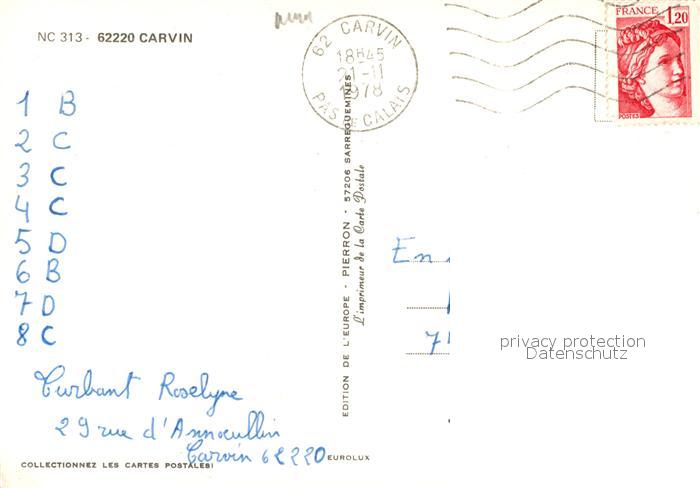 NC 313 - 62220 CARVIN
62 CARVIN
18H45
21-11
1978
PAS DE CALAIS
FRANCE 1,20
POSTES
1 B
2 C
3 C
4 C
5 D
6 B
7 D
8 C
Turbant Roselyne
29 rue d'Annoeullin
Carvin 62220
COLLECTIONNEZ LES CARTES POSTALES!
EUROLUX
EDITION DE L'EUROPE - PIERRON - 57206 SARREGUEMINES
L'imprimeur de la Carte Postale
En
7
privacy protection
Datenschutz